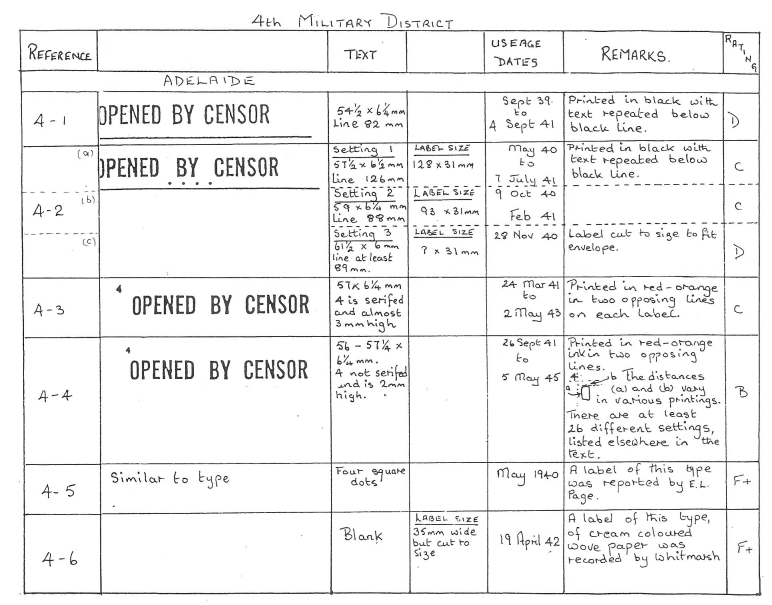 4th MILITARY DISTRICT
REFERENCE
TEXT
USEAGE
DATES
REMARKS.
RATING
ADELAIDE
A-1
OPENED BY CENSOR
54½ x 6¼ mm
Line 82 mm
Sept 39.
to
A Sept 41
Printed in black with
text repeated below
black line.
D
A-2
(a)
OPENED BY CENSOR
Setting 1
57½ x 6½ mm
line 126mm
LABEL SIZE
128 x 31mm
May 40
to
7 July 41
Printed in black with
text repeated below
black line.
C
(b)
Setting 2
59 x 6¼ mm
Line 88mm
LABEL SIZE
93 x 31mm
9 Oct 40
Feb 41
C
(c)
Setting 3
61½ x 6mm
line at least
89mm.
LABEL SIZE
? x 31mm
28 Nov 40
Label cut to sige to fit
envelope.
D
A-3
4
OPENED BY CENSOR
57 x 6¼ mm
4 is serifed
and almost
3mm high
24 Mar 41
to
2 May 43
Printed in red-orange
in two opposing lines
on each label.
C
A-4
4
OPENED BY CENSOR
56 - 57¼ x
6¼ mm.
4 not serifed
and is 2mm
high.
26 Sept 41
to
5 May 45
Printed in red-orange
ink in two opposing
lines.
4 b The distances
a (a) and (b) vary
in various printings.
There are at least
26 different settings,
listed elsewhere in the
text.
B
A-5
Similar to type
Four square
dots
May 1940
A label of this type
was reported by E.L.
Page.
F+
A-6
Blank
LABEL SIZE
35mm wide
but cut to
size
19 April 42
A label of this type,
of cream coloured
wove paper was
recorded by Whitmarsh
F+